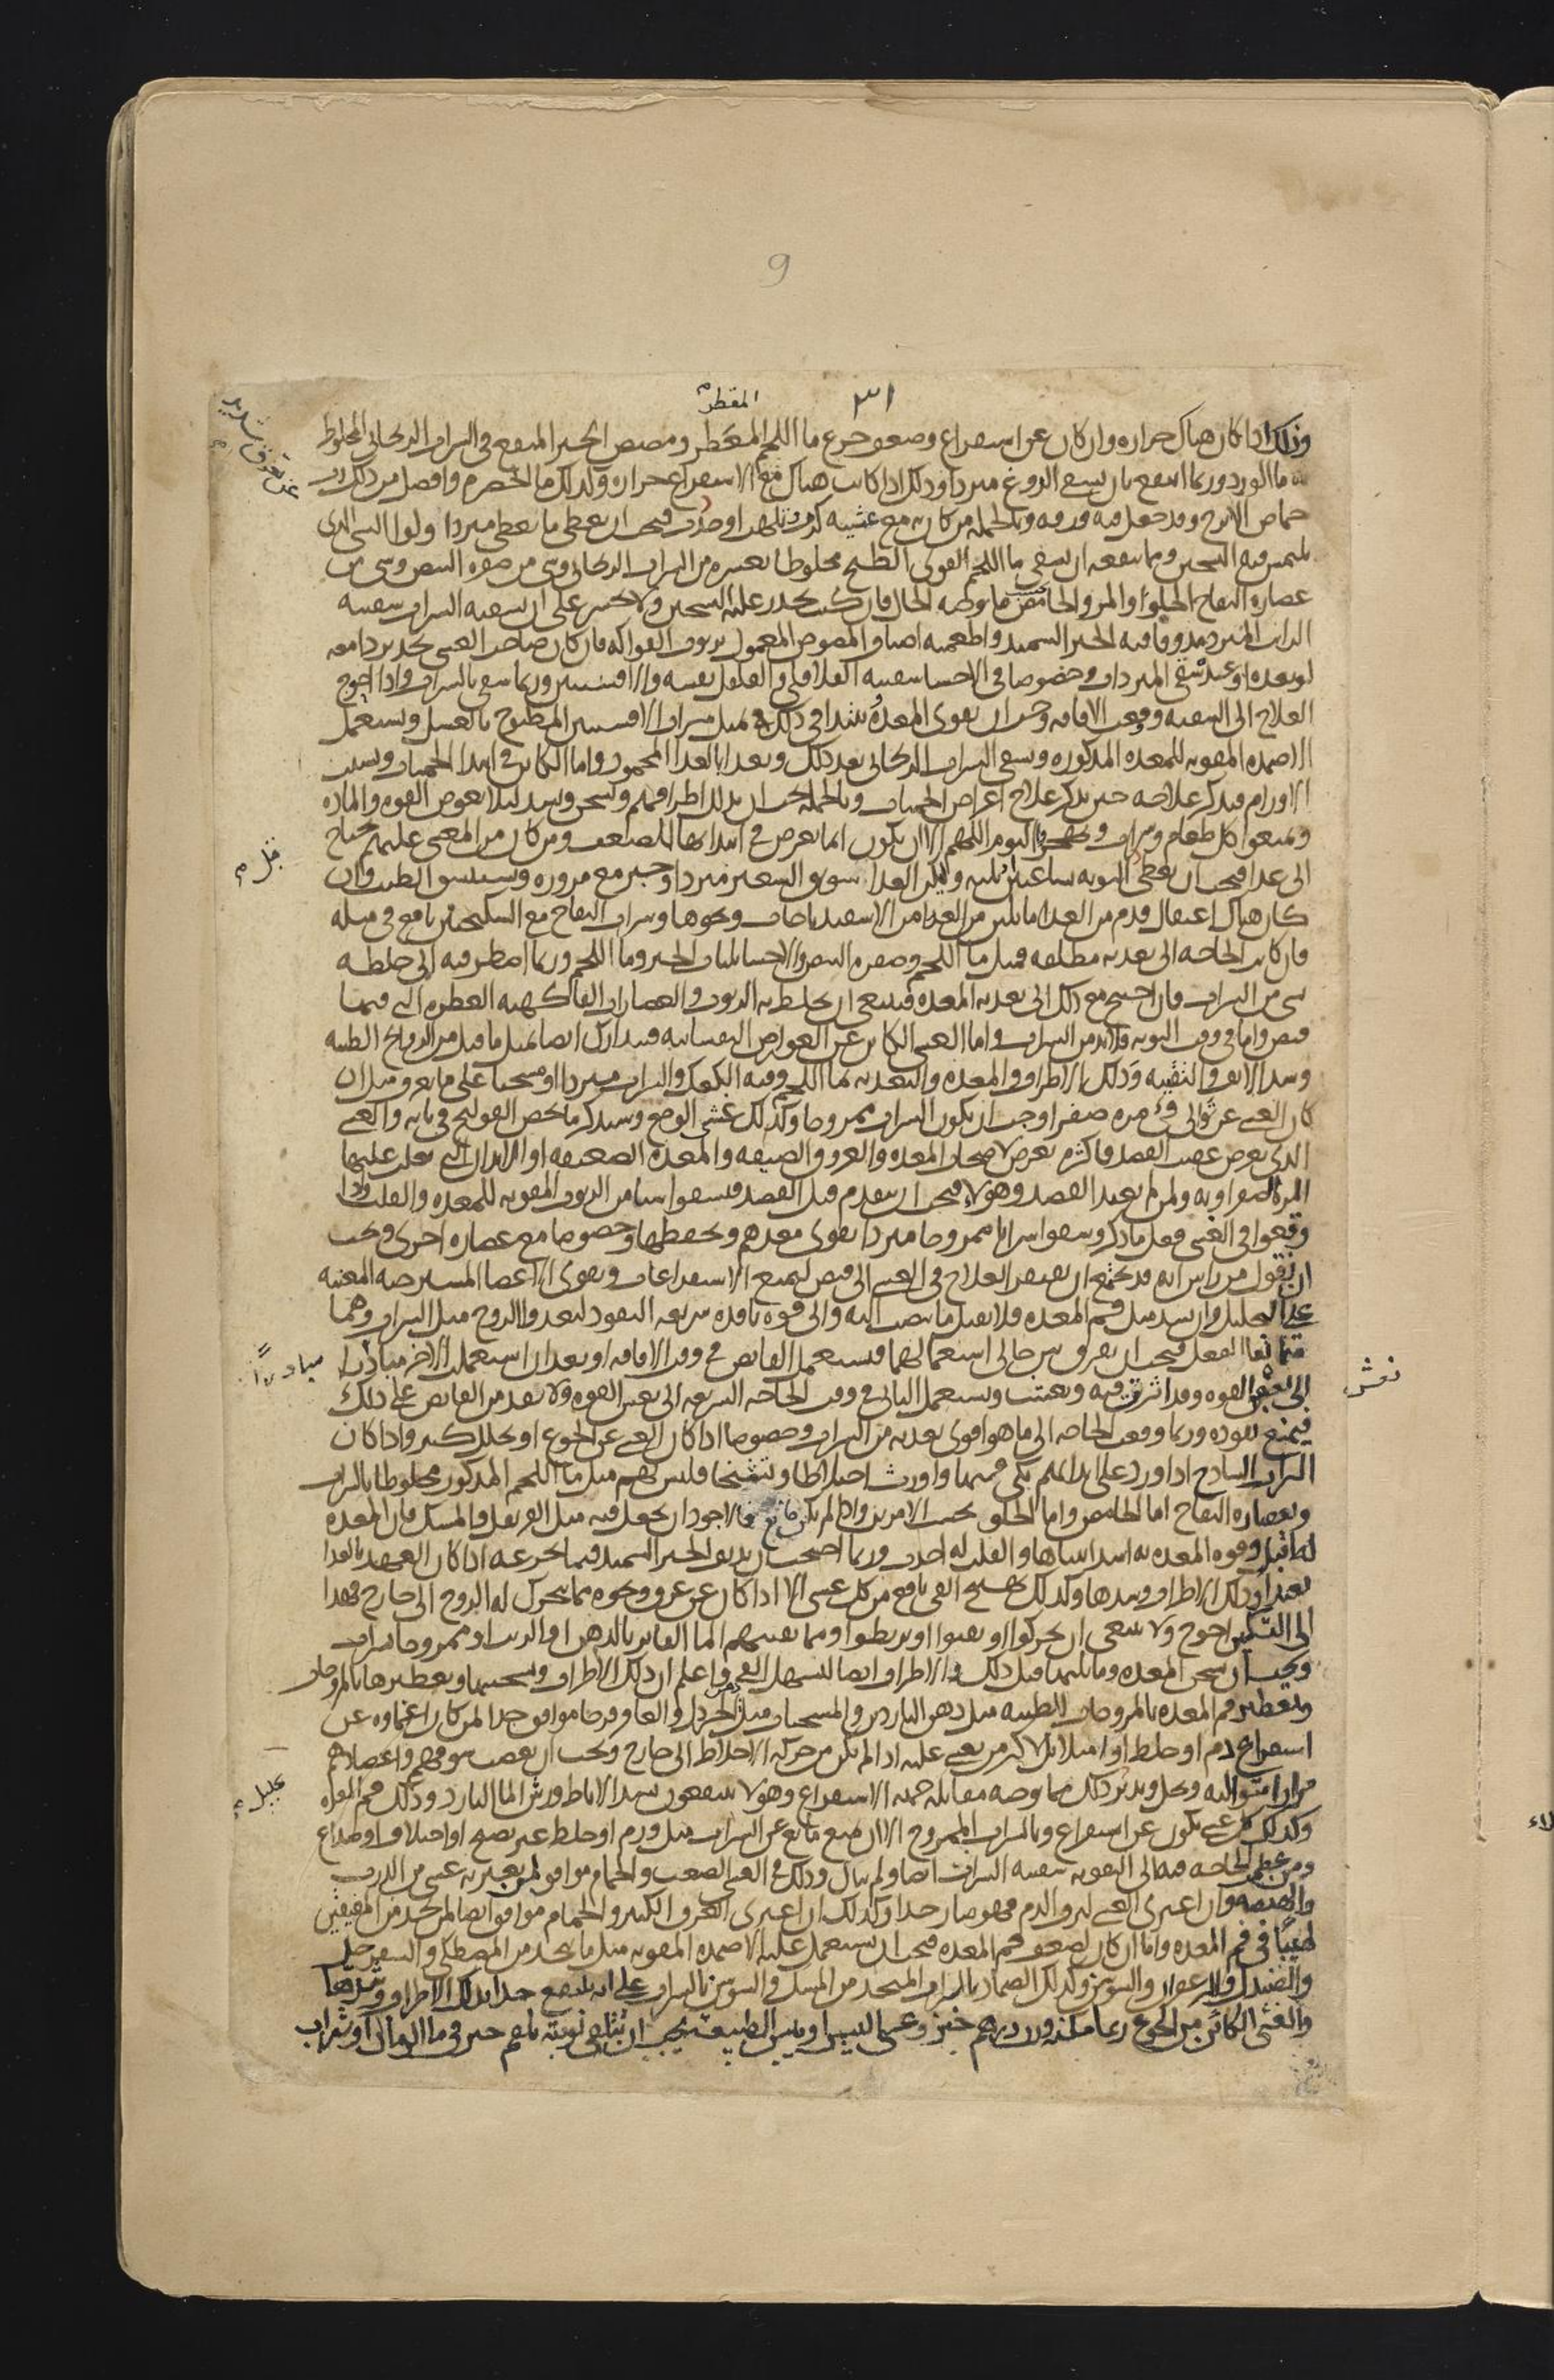 9
٣١
المقطر
وذلك اذا كان هناك حراره وان كان عن استفراغ وضعف جرع ما اللحم المعطر ومصص الخبز المنقع في الشراب الريحاني المخلوط
ما الورد وربما انتفع بان يسقى الدوغ مبردا وذلك اذا كانت هناك مع الاستفراغ حراره وكذلك ما الحصرم وافضل من ذلك رب
حماض الاترج وقد جعل فيه ورقه وبالجمله من كان به مع غشيه كرب وتلهب او حدث فيجب ان يعطى ما يعطى مبردا ولو الشي الذي
يلتمس فيه التسخين ومما ينفعه ان يسقى ما اللحم القوي الطبخ مخلوطا بعشره من الشراب الريحاني وشي من صفره البيض وشي من
عصاره التفاح الحلو او المر والحامض ما توجبه الحال فان كنت تحذر عليه التسخين ولا تجسر على ان تسقيه الشراب سقيته
الرائب المبرد مدوفا فيه الخبز السميد واطعمته اصناف المصوص المعمول بربوب الفواكه فان كان صاحب الغشي يجد بردا معه
او بعده او عند سقي المبردات وخصوصا في الاحشا سقيته الفلافلي والفلفل نفسه والافسنتين وربما سقي بالشراب واذا احوج
العلاج الى التنقيه ووقعت الافاقه وجب ان تقوى المعده تبتدا في ذلك بمثل شراب الافسنتين المطبوخ بالعسل وتستعمل
الاضمده المقويه للمعده المذكوره وتسقي الشراب الريحاني بعد ذلك وتغذا بالغذا المحمود واما الكاين في ابتدا الحميات وبسبب
الاورام فيذكر علاجه حين يذكر علاج اعراض الحميات وبالجمله يجب ان يدلك اطرافهم وتسخن وتشد ليلا يغوص القوه والماده
ويمنعوا كل طعام وشراب ويهجروا النوم اللهم الا ان يكون انما يعرض في ابتدايها للضعف ومن كان من المغشي عليهم يحتاج
الى غذا فيجب ان يعطى النوبه ساعتين ثلثه وليكن الغذا سويق الشعير مبردا وخبز مع مزوره ويستنشق الطيب وان
كان هناك اعتقال قدم من الغذا ما يلين من الغذا من الاسفيدباجات ونحوها وشراب التفاح مع السكنجبين نافع في مثله
فان كانت الحاجه الى تغذيه مطلقه فمثل ما اللحم وصفره البيض والاحسا بلباب الخبز وما اللحم وربما اضطر فيه الى خلطه
شي من الشراب فان احتيج مع ذلك الى تقويه المعده فينبغي ان يخلط به الربوب والعصارات الفاكهيه العطره التي فيها
قبض واما في وقت النوبه فلا بد من الشراب واما الغشي الكاين عن العوارض النفسانيه فيتدارك ايضا بمثل ما قيل من الروايح الطيبه
وسد الانف والتقييه ودلك الاطراف والمعده والتغذيه بما اللحم وفيه الكعك والشراب مبردا او مسخنا على ما تعرف مثل ان
كان الغشي عن توالي قي مره صفرا وجب ان يكون الشراب ممزوجا وكذلك غشي الوجع وسنذكر ما يخص القولنج في بابه والغشي
الذي يعرض عقيب الفصد فاكثره يعرض لاصحاب المعده والعروق الضيقه والمعده الضعيفه او الابدان التي يغلب عليها
المره الصفراويه ولمن لم يعتد الفصد وهولا فيجب ان يتقدم قبل الفصد فيسقوا شيا من الربوب المقويه للمعده والقلب واذا
وقعوا في الغشي فعل ما ذكر وسقوا شرابا ممزوجا مبردا يقوى معدهم ويحفظها وخصوصا مع عصاره اخرى ويجب
ان نقول من راس انه قد يجتمع ان يفتقر العلاج في الغشي الى قبض ليمنع الاستفراغات ويقوى الاعضا المسترخيه المعينه
على التحليل وان يشد مثل فم المعده فلا يقبل ما ينصب اليه والى قوه نافذه سريعه النفوذ لتغذوا الروح مثل الشراب وهما
متمانعا الفعل فيجب ان يفرق بين حالي استعمالهما فيستعمل القابض في وقت الافاقه او بعد ان استعملت الاخر مبادرا
الى نعش القوه وقد اثرت فيه ونعشت ويستعمل الثاني في وقت الحاجه السريعه الى نعش القوه ولا يقدم القابض على ذلك
فيمنع نفوذه وربما وقعت الحاجه الى ما هو اقوى تغذيه من الشراب وخصوصا اذا كان الغشي عن الجوع او تحلل كثير واذا كان
الشراب الساذج اذا ورد على ابدانهم نكى فيها واورث اختلاطا وتشنجا فليس لهم مثل ما اللحم المذكور مخلوطا بالشراب
وبعصاره التفاح اما الحامض واما الحلو بحسب الامرين واذا لم يكن مانع فالاجود ان يجعل فيه مثل القرنفل والمسك فان المعده
له اقبل وقوه المعده به اشد انتباها والقلب له اجذب وربما احتجت ان تديف الخبز السميد فيما تجرعه اذا كان العهد بالغذا
بعيدا وذلك الاطراف وشدها وكذلك تهييج القي نافع من كل غشي الا اذا كان عن عرق ونحوه مما يتحرك له الروح الى خارج فهذا
الى التسكين احوج ولا ينبغي ان يحركوا او يقيوا او يربطوا ومما يقييهم الما الفاتر بالدهن او الزيت او ممزوجا بشراب
ويجب ان تسخن المعده وما يليها قبل ذلك والاطراف ايضا ليسهل القي واعلم ان دلك الاطراف وتسخينها وتعطيرها بالمروخات
وتعطير فم المعده بالمروخات الطيبه مثل دهن الناردين والمسخنات مثل الخردل والعاقرقرحا موافق جدا لمن كان اغماوه عن
استفراغ دم او خلط او امتلا بل لاكثر من يغشي عليه اذا لم يكن من حركه الاخلاط الى خارج ويجب ان يعصب سوقهم واعضادهم
مرارا متواليه وتحل ويدبر ذلك مما توجبه مقابله جهه الاستفراغ وهولا ينتفعون بشد الاباط ورش الما البارد ودلك فم المعده
وكذلك كل غشي يكون عن استفراغ وبالشراب الممزوج الا ان يمنع مانع عن الشراب مثل ورم او خلط غير نضج او اختلاف او صداع
ومن عظمت الحاجه فيه الى التقويه سقيته الشراب ايضا ولم تبال وذلك في الغشي الصعب والحمام موافق لمن يعتريه غشي من الذرب
والهيضه وان اعتري الغشي لنزف الدم فهو ضار جدا وكذلك ان اعترى العرق الكثير والحمام موافق ايضا لمن يجد من المفيقين
لهيبا في فم المعده واما ان كان لضعف فم المعده فيجب ان يستعمل عليه الاضمده المقويه مثل ما يتخذ من المصطكي والسفرجل
والصندل والزعفران والسوسن وكذلك الضماد بالشراب المتخذ من المسك والسوسن بالشراب على انه ينتفع جدا بدلك الاطراف وشدها
والغشي الكاين من الجوع ربما سكنه وزن درهم خبز وغشي اليبس او يبس الطبيعه يجب ان يتلقى نوبته بلقم خبز في ما الرمان او شراب
عن تعرق شديد
قبل
مبادرا
نعش
تحليل